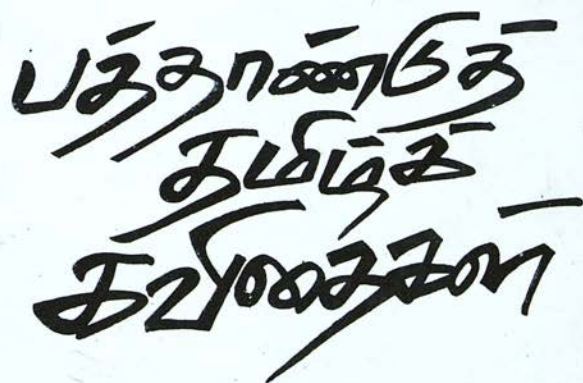 பத்தாண்டுத்
தமிழ்க்
கவிதைகள்